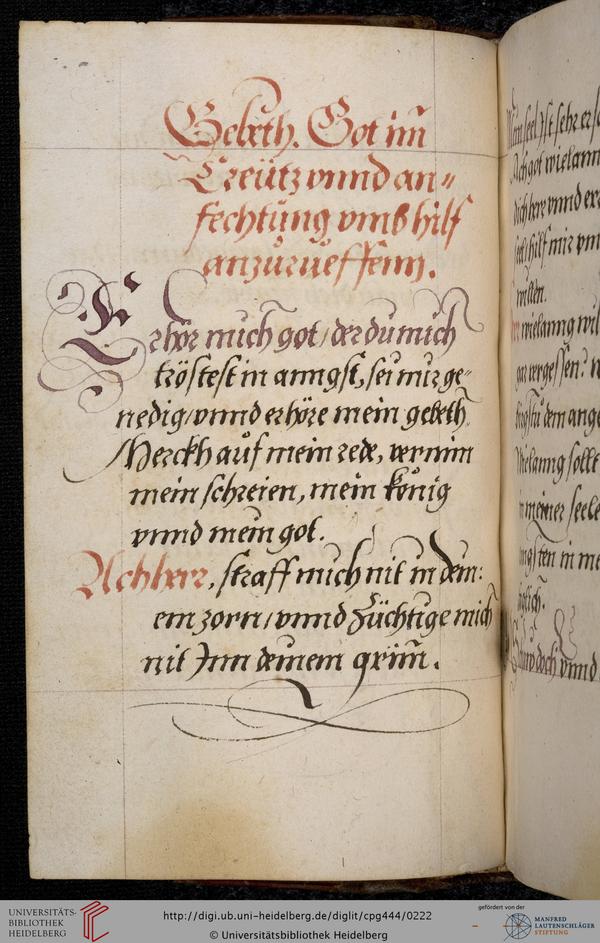 Gebeth. Got im̃
Creütz vnnd an-
fechtung vmb hilf
anzurueffenn.
Erhör mich got, der du mich
tröstest in anngst, sei mir ge-
nedig, vnnd erhöre mein gebeth.
Merckh auf mein rede, vernim
mein schreien, mein könig
vnnd mein got.
Ach herr, straff mich nit in dein:
em zorn, vnnd züchtige mich
nit Inn deinem grim̃.
seel Ist sehr
Ach got wielann
dich herr vnnd
hilf mir
willen.
wielanng
vergessen?
dein
Wielanng sollt
in meiner seele
in
doch vnnd
UNIVERSITÄTS-
BIBLIOTHEK
HEIDELBERG
http://digi.ub.uni-heidelberg.de/diglit/cpg444/0222
© Universitätsbibliothek Heidelberg
gefördert von der
MANFRED
LAUTENSCHLÄGER
STIFTUNG